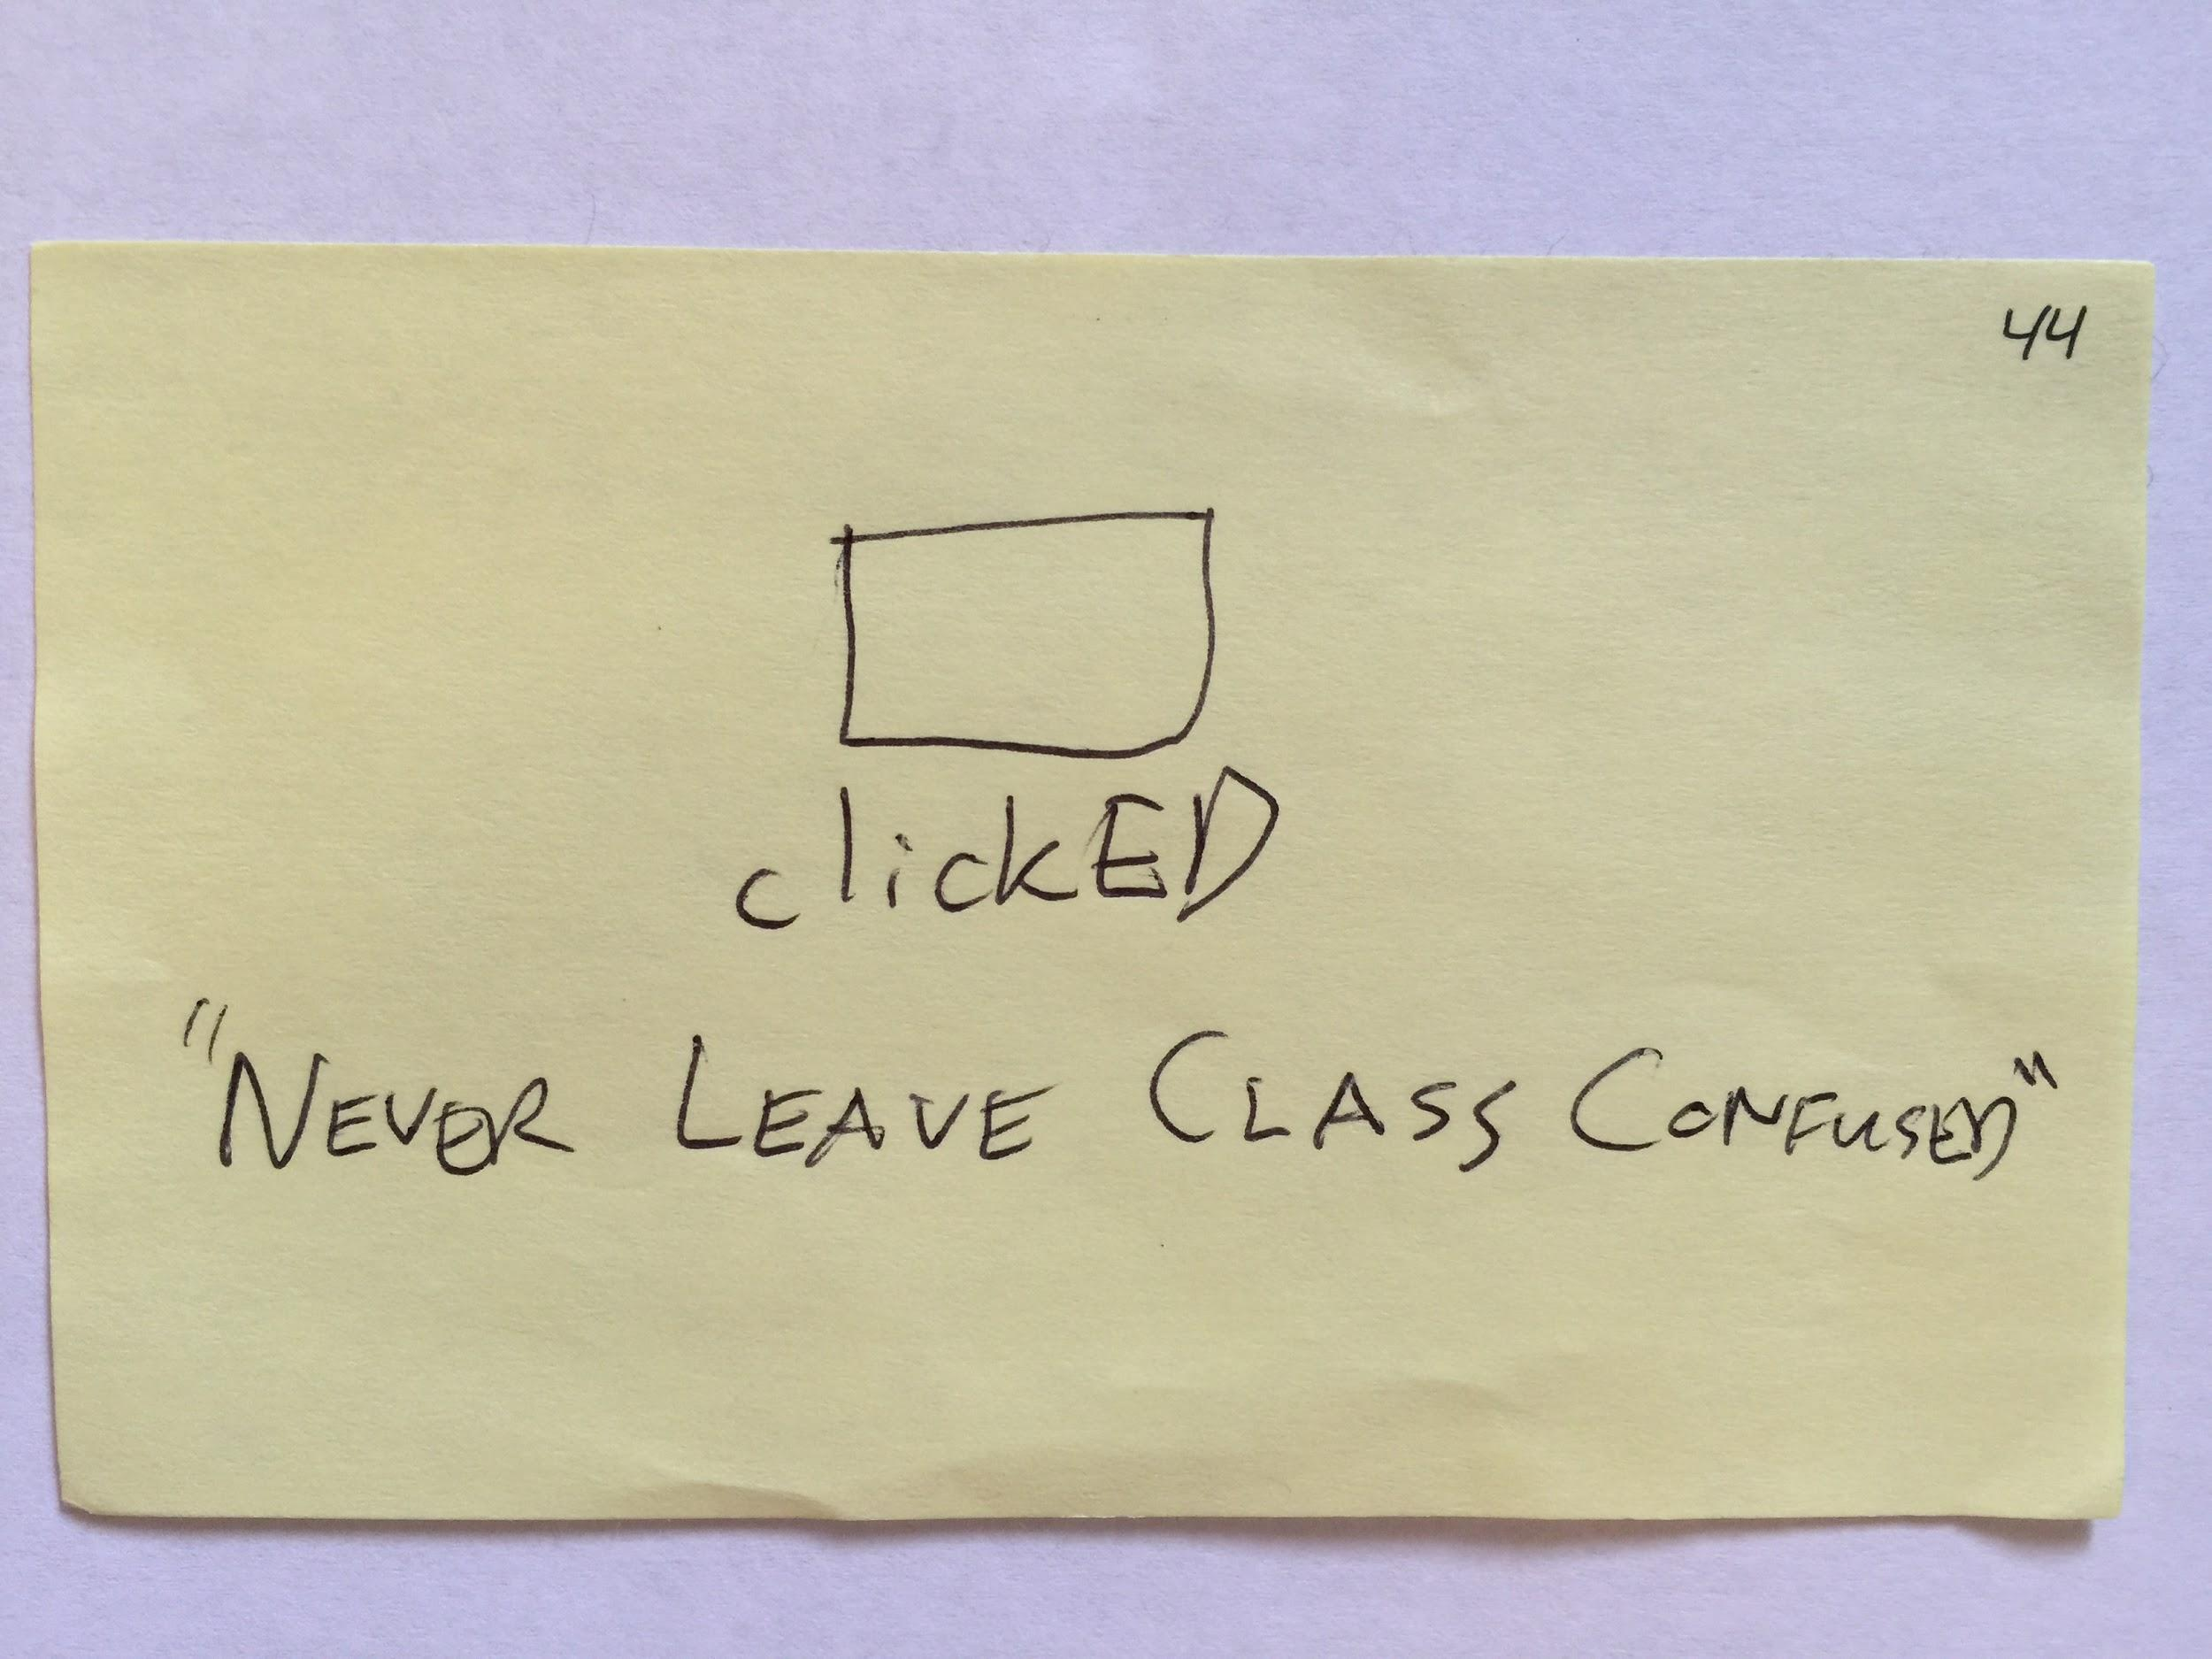 44
clickED
"NEVER LEAVE CLASS CONFUSED"